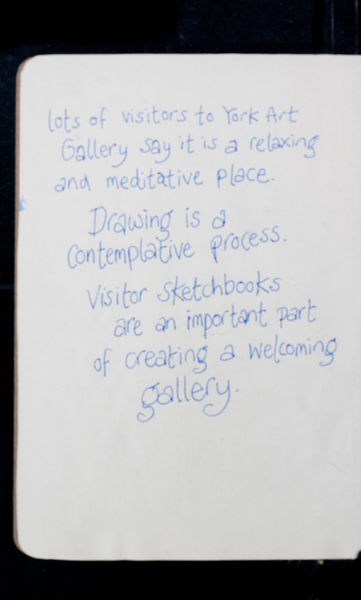 lots of visitors to York Art
Gallery say it is a relaxing
and meditative place.
Drawing is a
contemplative process.
Visitor sketchbooks
are an important part
of creating a welcoming
gallery.